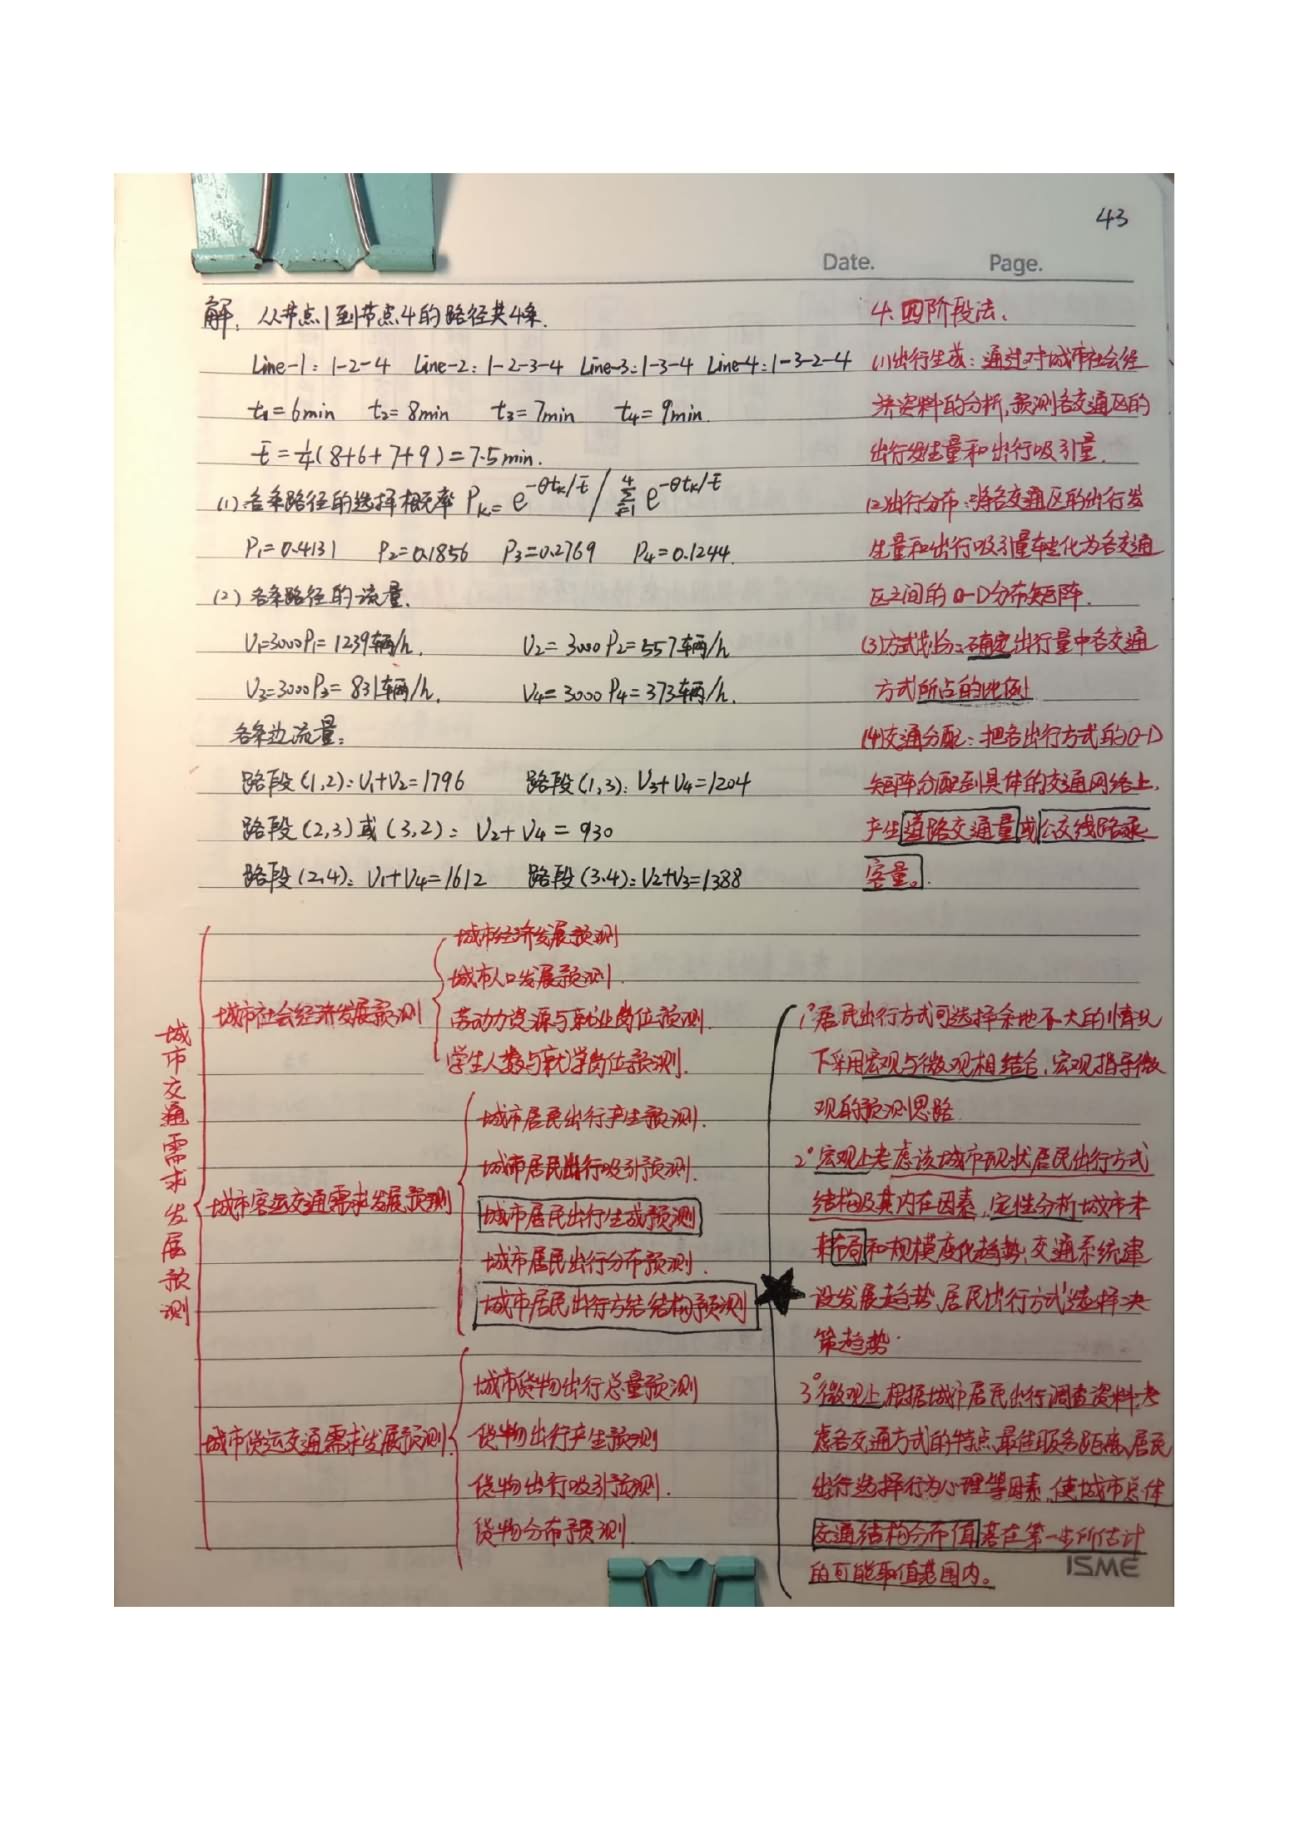 43
Date. Page.
解: 从节点1到节点4的路径共4条.
Line-1: 1-2-4 Line-2: 1-2-3-4 Line-3: 1-3-4 Line-4: 1-3-2-4
t₁=6min t₂=8min t₃=7min t₄=9min.
t̄=¼(8+6+7+9)=7.5min.
(1) 各条路径的选择概率 Pₖ= e^(-θtₖ/t̄) / Σ(i=1→4) e^(-θtₖ/t̄)
P₁=0.4131 P₂=0.1856 P₃=0.2769 P₄=0.1244.
(2) 各条路径的流量.
V₁=3000P₁=1239辆/h. V₂=3000P₂=557辆/h
V₃=3000P₃=831辆/h. V₄=3000P₄=373辆/h.
各条边流量:
路段(1,2): V₁+V₂=1796 路段(1,3): V₃+V₄=1204
路段(2,3)或(3,2): V₂+V₄=930
路段(2,4): V₁+V₄=1612 路段(3,4): V₂+V₃=1388
4. 四阶段法.
(1)出行生成: 通过对城市社会经
济资料的分析,预测各交通区的
出行发生量和出行吸引量.
(2)出行分布: 将各交通区的出行发
生量和出行吸引量转化为各交通
区之间的O-D分布矩阵.
(3)方式划分: 确定出行量中各交通
方式所占的比例
(4)交通分配: 把各出行方式的O-D
矩阵分配到具体的交通网络上,
产生道路交通量或公交线路乘
客量。
城市交通需求发展预测
城市社会经济发展预测
城市经济发展预测
城市人口发展预测.
劳动力资源与就业岗位预测.
学生人数与就学岗位预测.
城市客运交通需求发展预测
城市居民出行产生预测.
城市居民出行吸引预测.
城市居民出行生成预测
城市居民出行分布预测.
城市居民出行方式结构预测
城市货运交通需求发展预测
城市货物出行总量预测
货物出行产生预测
货物出行吸引预测.
货物分布预测.
1°居民出行方式可选择余地不大的情况
下采用宏观与微观相结合,宏观指导微
观的预测思路.
2°宏观上考虑该城市现状居民出行方式
结构及其内在因素,定性分析城市未
来布局和规模变化趋势,交通系统建
设发展趋势,居民出行方式选择决
策趋势.
3°微观上根据城市居民出行调查资料,考
虑各交通方式的特点,最佳服务距离,居民
出行选择行为心理等因素,使城市总体
交通结构分布值落在第一步所估计
的可能取值范围内。
ISME